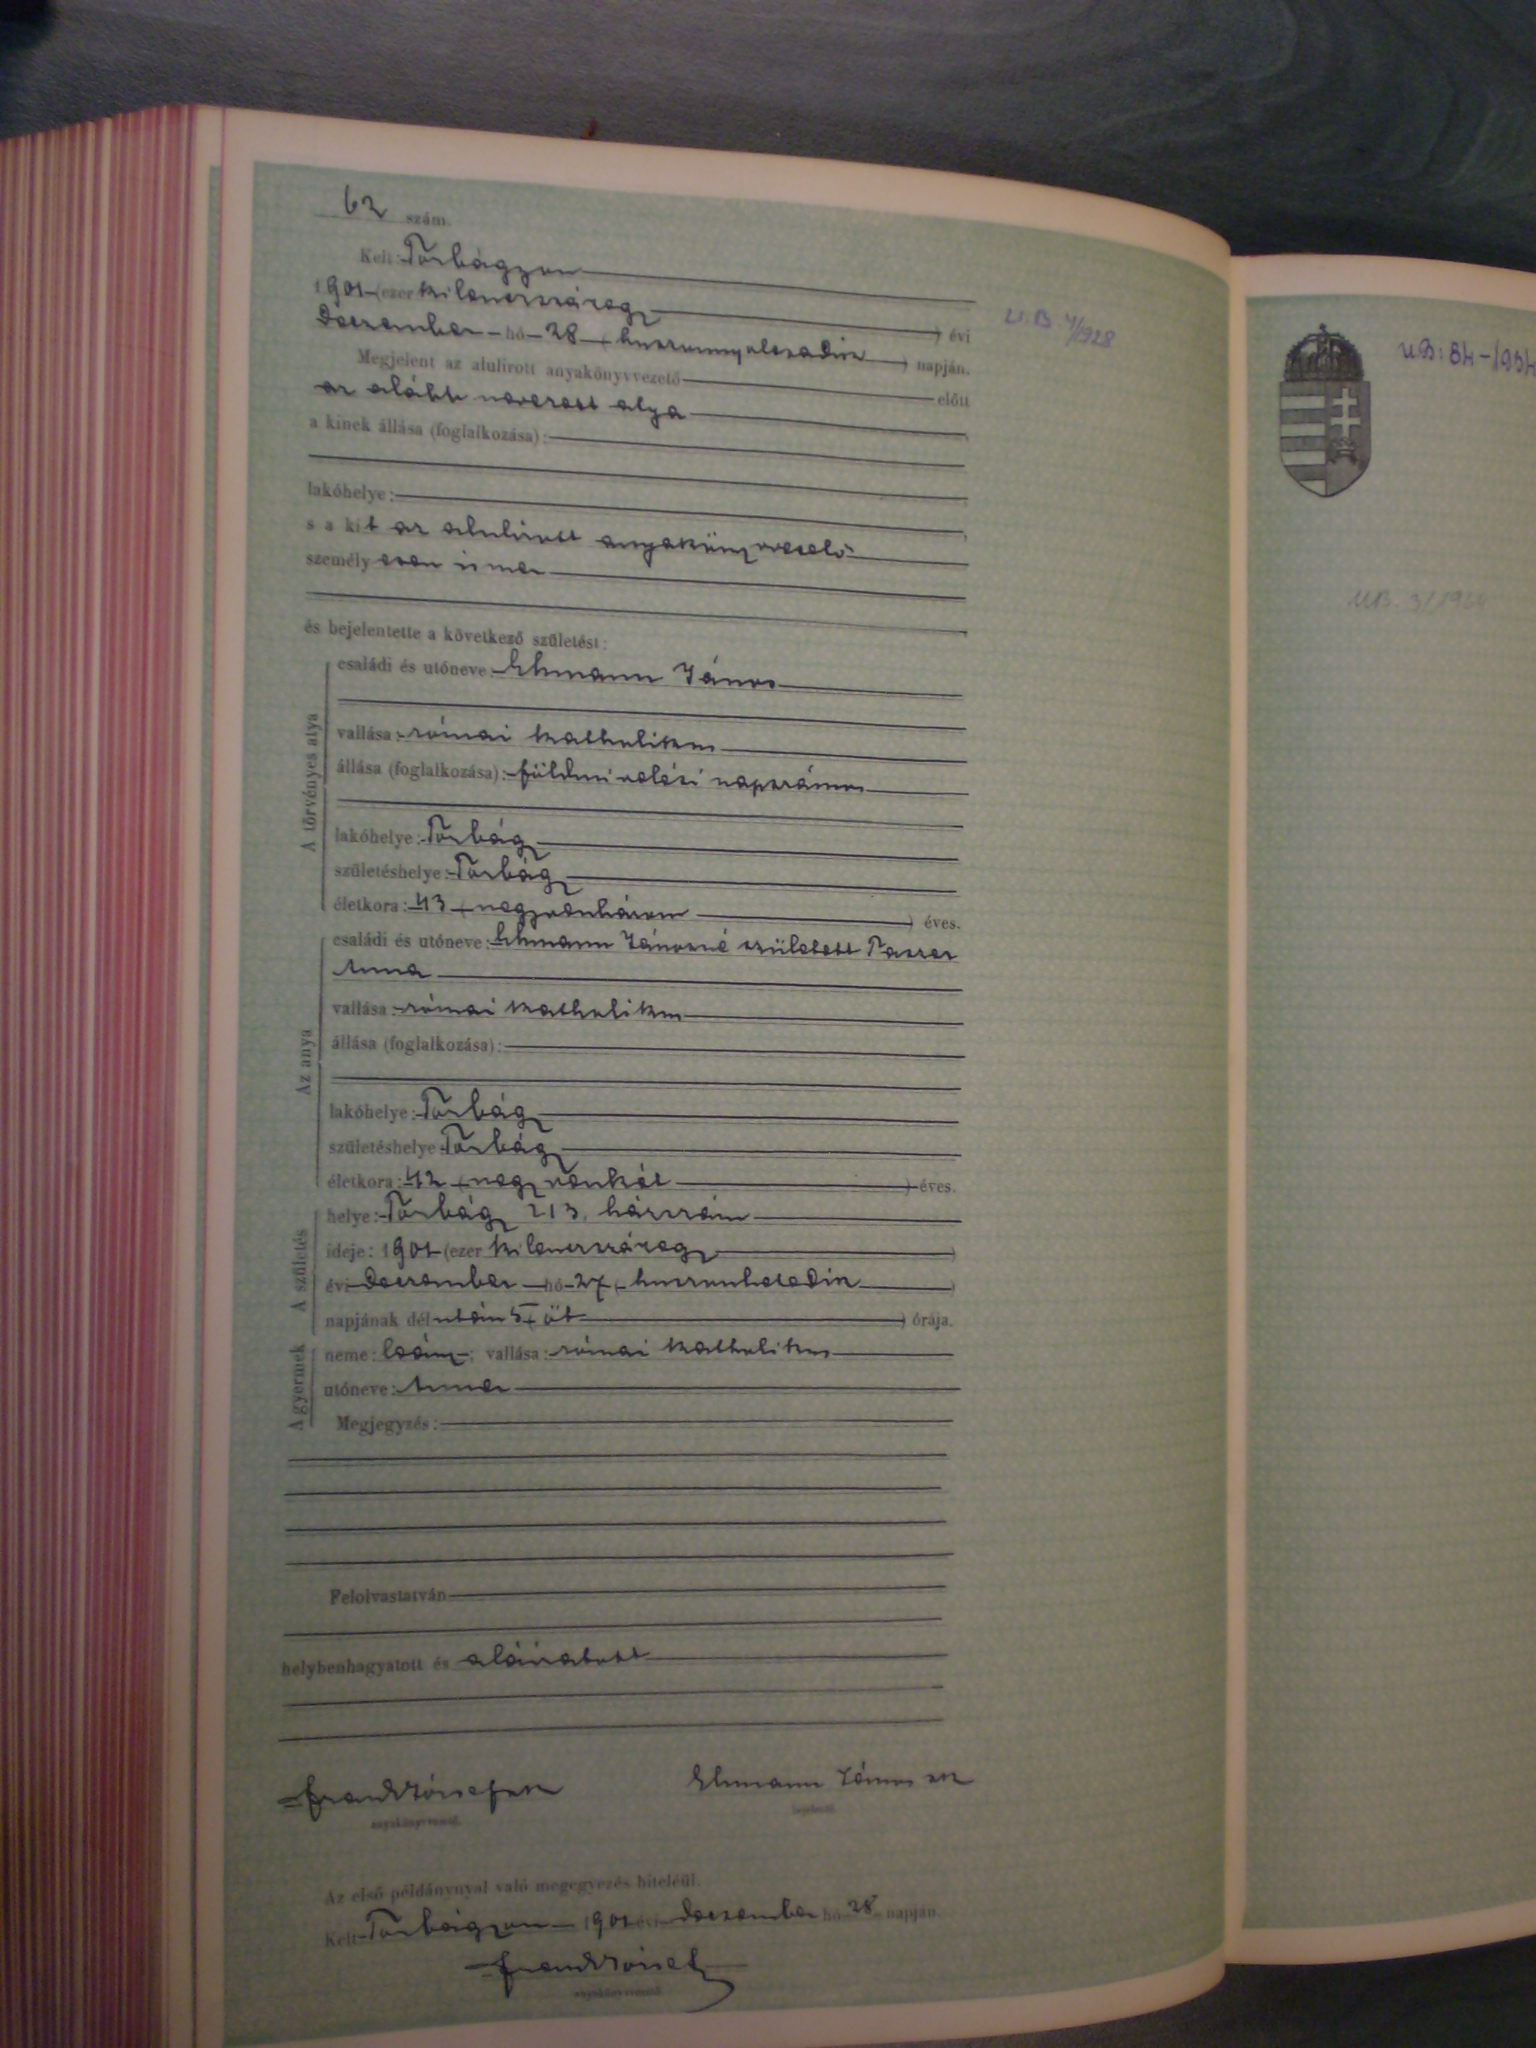 62 szám.
Kelt: Torbágyon
1901 (ezer kilenczszázegy) évi
Deczember hó 28 (huszonnyolczadik) napján.
Megjelent az alulirott anyakönyvvezető előtt
az alább nevezett atya
a kinek állása (foglalkozása):
lakóhelye:
s a kit az alulirott anyakönyvvezető
személyesen ismer
és bejelentette a következő születést:
A törvényes atya
családi és utóneve: Ehmann János
vallása: római katholikus
állása (foglalkozása): földmivelési napszámos
lakóhelye: Torbágy
születéshelye: Torbágy
életkora: 43 (negyvenhárom) éves.
Az anya
családi és utóneve: Ehmann Jánosné született Paszer
Anna
vallása: római katholikus
állása (foglalkozása):
lakóhelye: Torbágy
születéshelye Torbágy
életkora: 42 (negyvenkét) éves.
A születés
helye: Torbágy 213. házszám
ideje: 1901 (ezer kilenczszázegy)
évi Deczember hó 27 (huszonhetedik)
napjának délután 5 (öt) órája.
A gyermek
neme: leány; vallása: római katholikus
utóneve: Anna
Megjegyzés:
Felolvastatván
helybenhagyatott és aláiratott
Frank József sk Ehmann János sk
anyakönyvvezető. bejelentő.
Az első példánynyal való megegyezés hiteléül.
Kelt Torbágyon 1901 évi Deczember hó 28 napján.
Frank József
anyakönyvvezető.
U.B. 4/1928
U.B: 84-1954